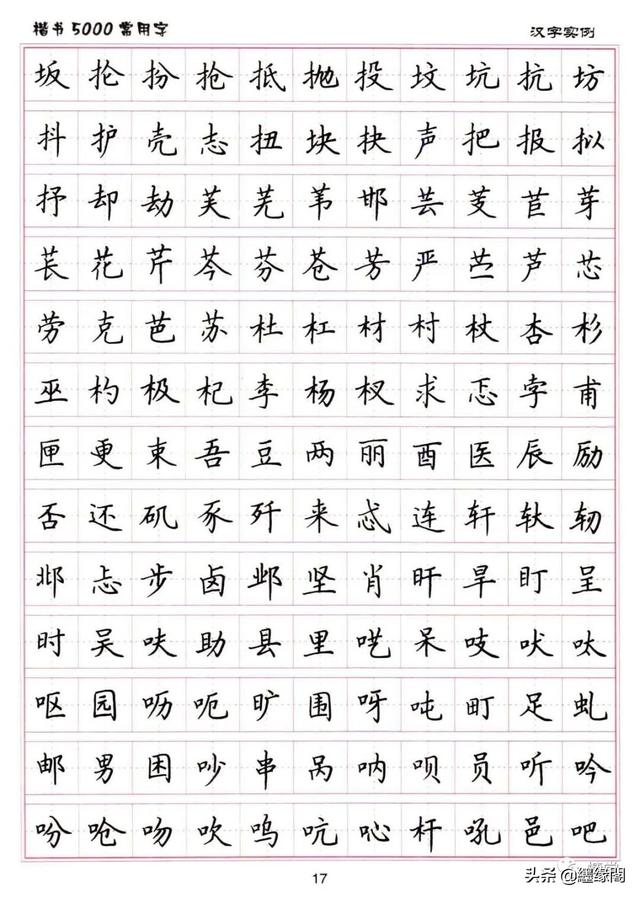 楷书5000常用字 汉字实例
坂抡扮抢抵抛投坟坑抗坊
抖护壳志扭块抉声把报拟
抒却劫芙芜苇邯芸芰苣芽
苌花芹芩芬苍芳严苎芦芯
劳克芭苏杜杠材村杖杏杉
巫杓极杞李杨杈求忑孛甫
匣更束吾豆两丽酉医辰励
否还矶豕歼来忒连轩轪轫
邶忐步卤邺坚肖旰旱盯呈
时吴呋助县里呓呆吱吠呔
呕园呖呃旷围呀吨町足虬
邮男困吵串呙呐呗员听吟
吩呛吻吹呜吭吣杆吼邑吧
17
头条@纏缘閣